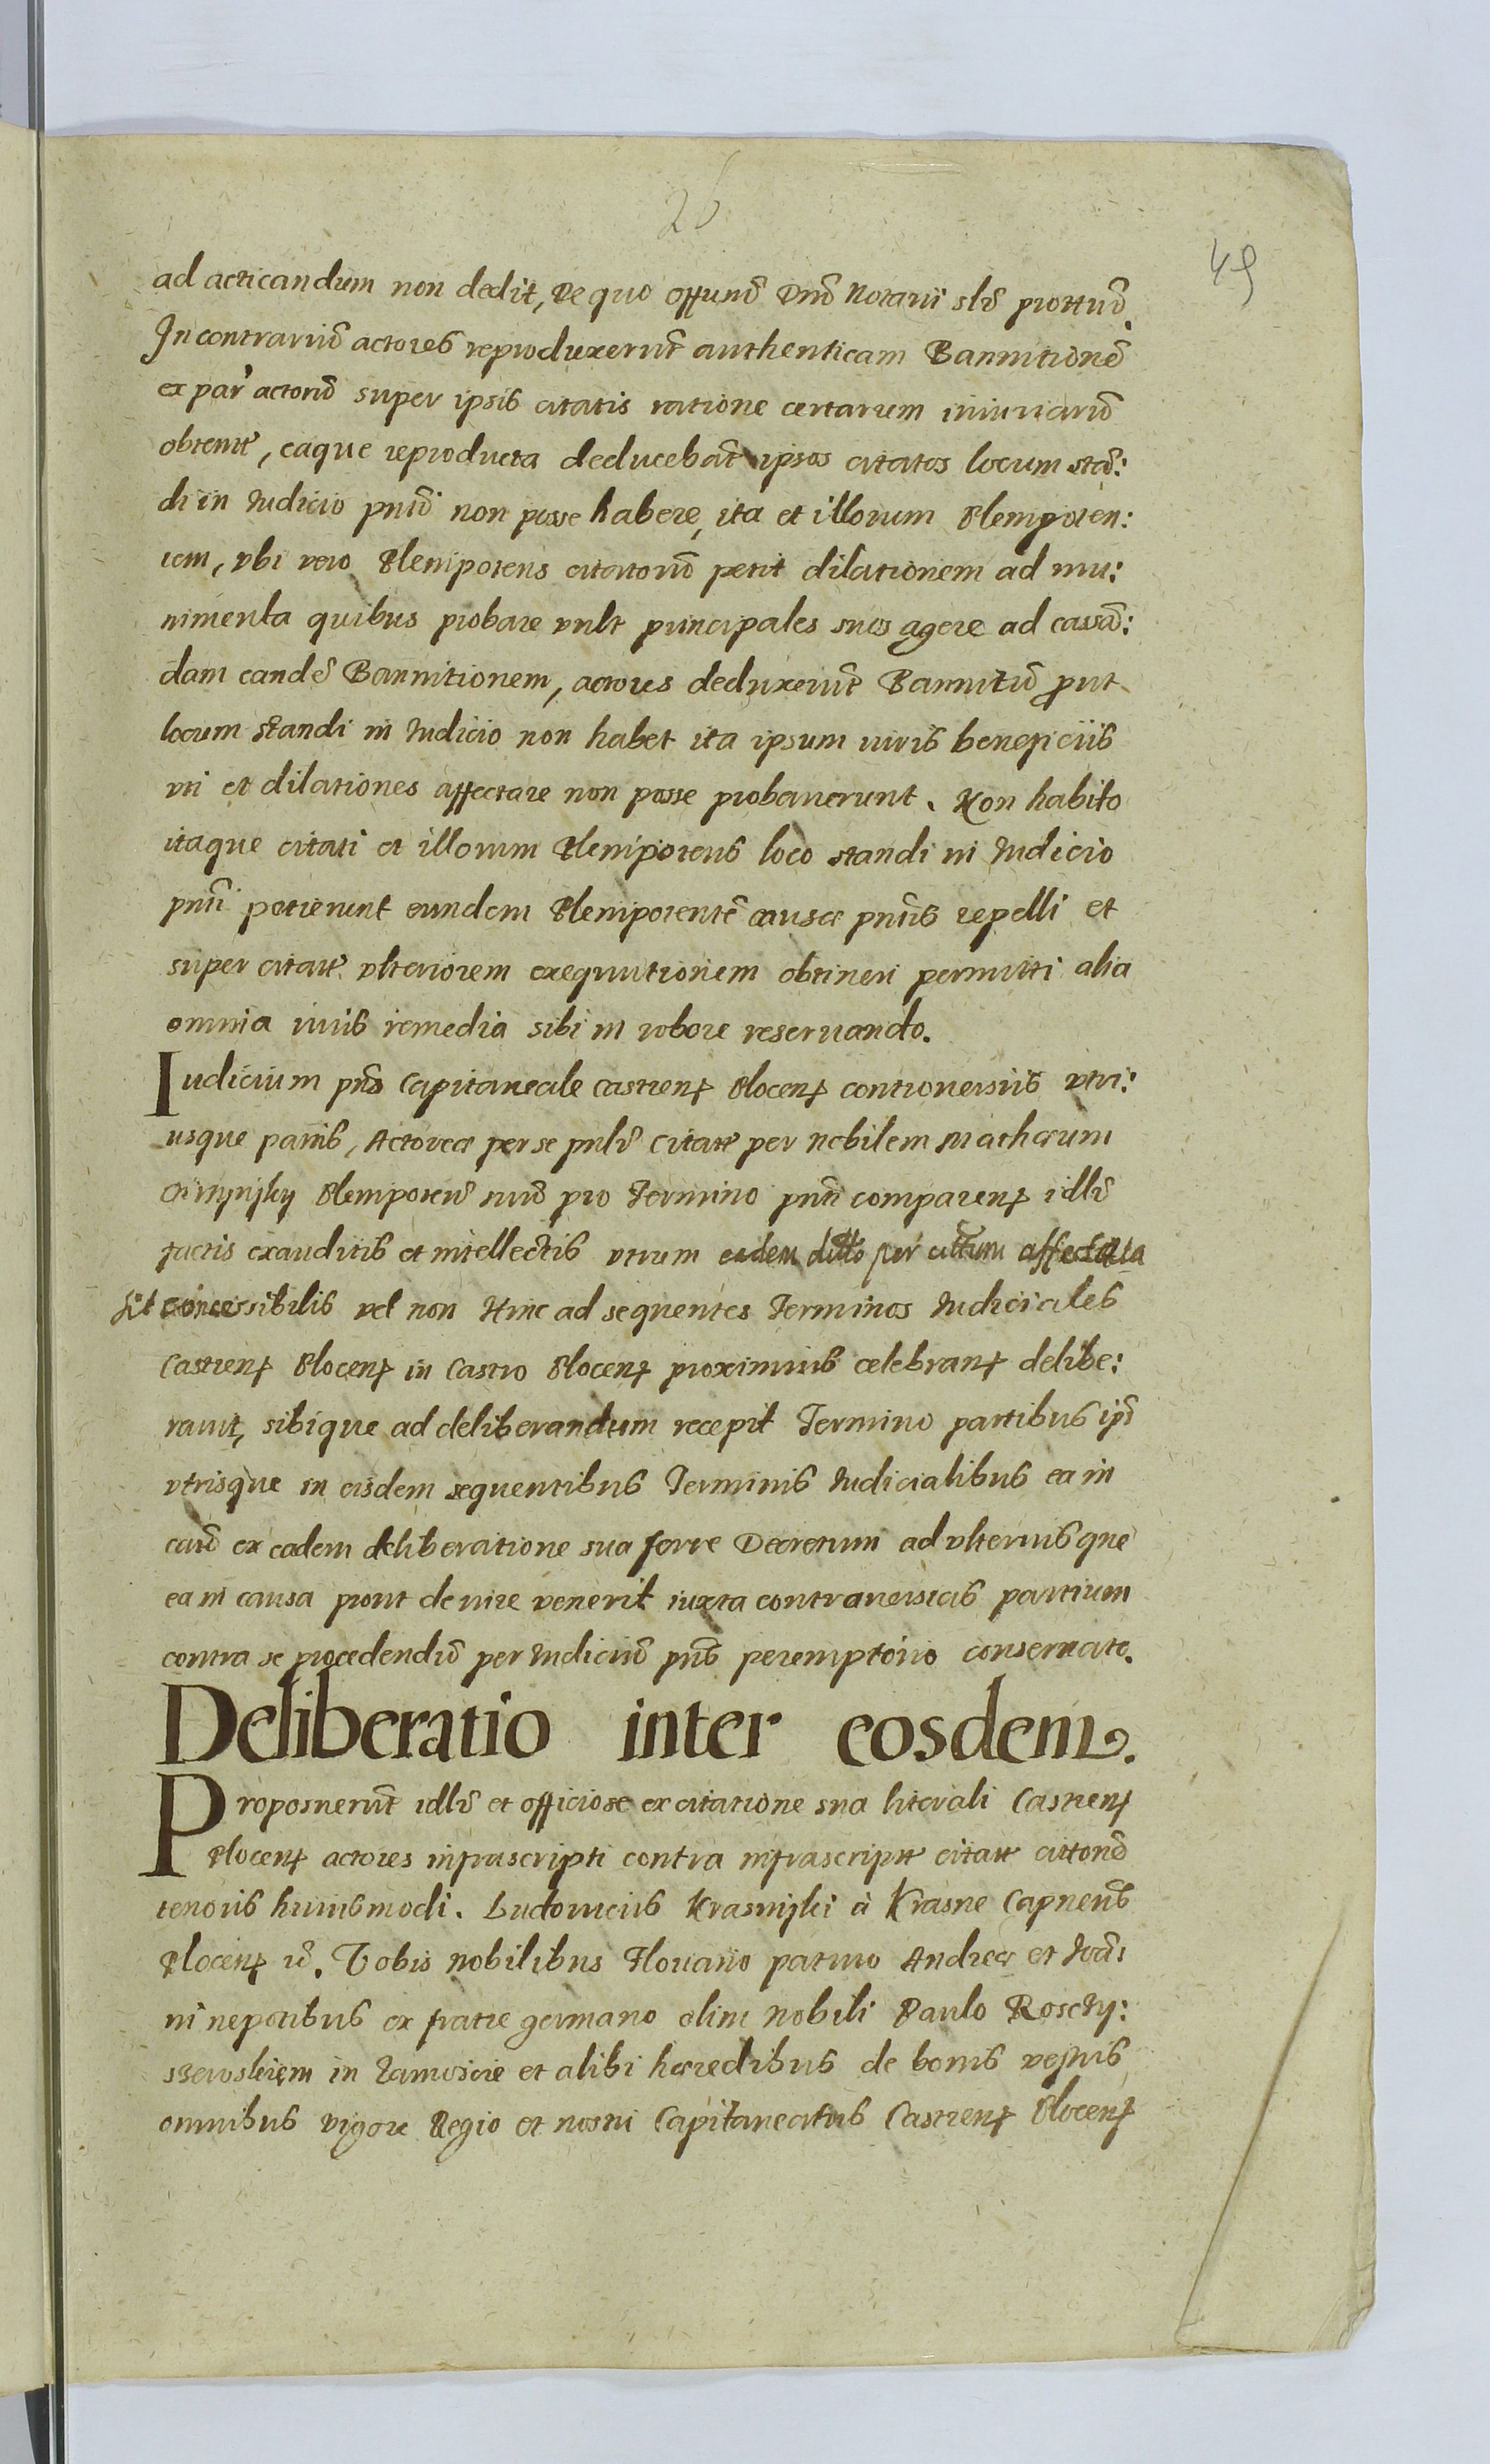 26
49
ad acticandum non dedit, De quo offund Dnu Notarii sle prottuõ.
In contrariũ actores reproduxerunt authenticam Bannitionẽ
ex par actorũ super ipsis citatis ratione certarum iniuriarũ
obtent, eaque reproducta deducebãt ipsos citatos locum stã:
di in Iudicio pnti non posse habere, ita et illorum Plenipoten:
tem, vbi vero Plenipotens citatorũ petit dilationem ad mu:
nimenta quibus probare vult principales suos agere ad cassã:
dam eandẽ Bannitionem, actores deduxerũt Bannitũ prut
locum standi in Iudicio non habet ita ipsum iuris beneficiis
vti et dilationes affectare non posse probauerunt. Non habito
itaque citati et illorum Plenipotens loco standi in Iudicio
pnti petierunt eundem Plenipotentẽ causæ pntis repelli et
super citat vlteriorem exequutionem obtineri permitti alia
omnia iuris remedia sibi in robore reseruando.
Iudicium pns Capitaneale Castren Plocen controuersiis vtri:
usque partis, Actorea per se pnlr Citat per nobilem Mathæum
Plenipoten suũ pro Termino pnti comparen idlr
factis exauditis et intellectis vtrum eadem dilto per cittum affectata
sit concessibilis vel non Hinc ad sequentes Terminos Iudiciales
Castren Plocen in Castro Plocen proximius celebran delibe:
rauit, sibique ad deliberandum recepit Termino partibus ips
vtrisque in eisdem sequentibus Terminis Iudicialibus ea in
cau ex eadem deliberatione sua ferre Decretum ad vlteriusque
ea in causa prout de iure venerit iuxta controuersias partium
contra se procedendũ per Iudiciũ pns peremptorio conseruato.
Deliberatio inter eosdem.
Proposuerũt idlr et officiose ex citatione sua literali Castren
Plocen actores infrascripti contra infrascript citat cittonẽ
tenoris huiusmodi. Ludouicus Krasinski à Krasne Capneus
Plocen rc. Vobis nobilibus Floriano patruo Andreæ et Ioãi
ni nepotibus ex fratre germano olim nobili Paulo Rosczy:
szewskiem in Zamoscie et alibi hæredibus de bonis vestris
omnibus vigore Regio et nostri Capitaneatus Castren Plocen